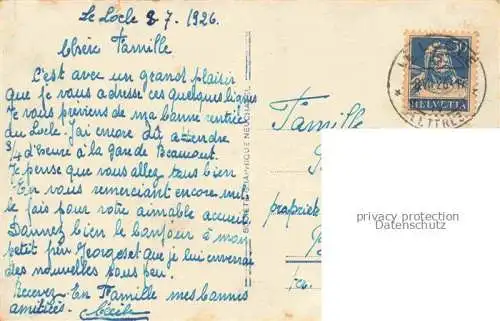 Le Locle 8 7. 1926.
Chère Famille
C'est avec un grand plaisir
que je vous adresse ces quelques lignes
Je vous préviens de ma bonne rentrée
du Locle. j'ai encore dû attendre
3/4 d'heure à la gare de
Je pense que vous allez tous bien
En vous remerciant encore
le fais pour votre aimable accueil
Donnez bien le bonjour à mon
petit Georges et que je lui enverrai
des nouvelles sous peu.
Recevez En Famille mes bonnes
amitiés. Cécile
HELVETIA
LETTRES
Famille
proprieté
privacy protection
Datenschutz